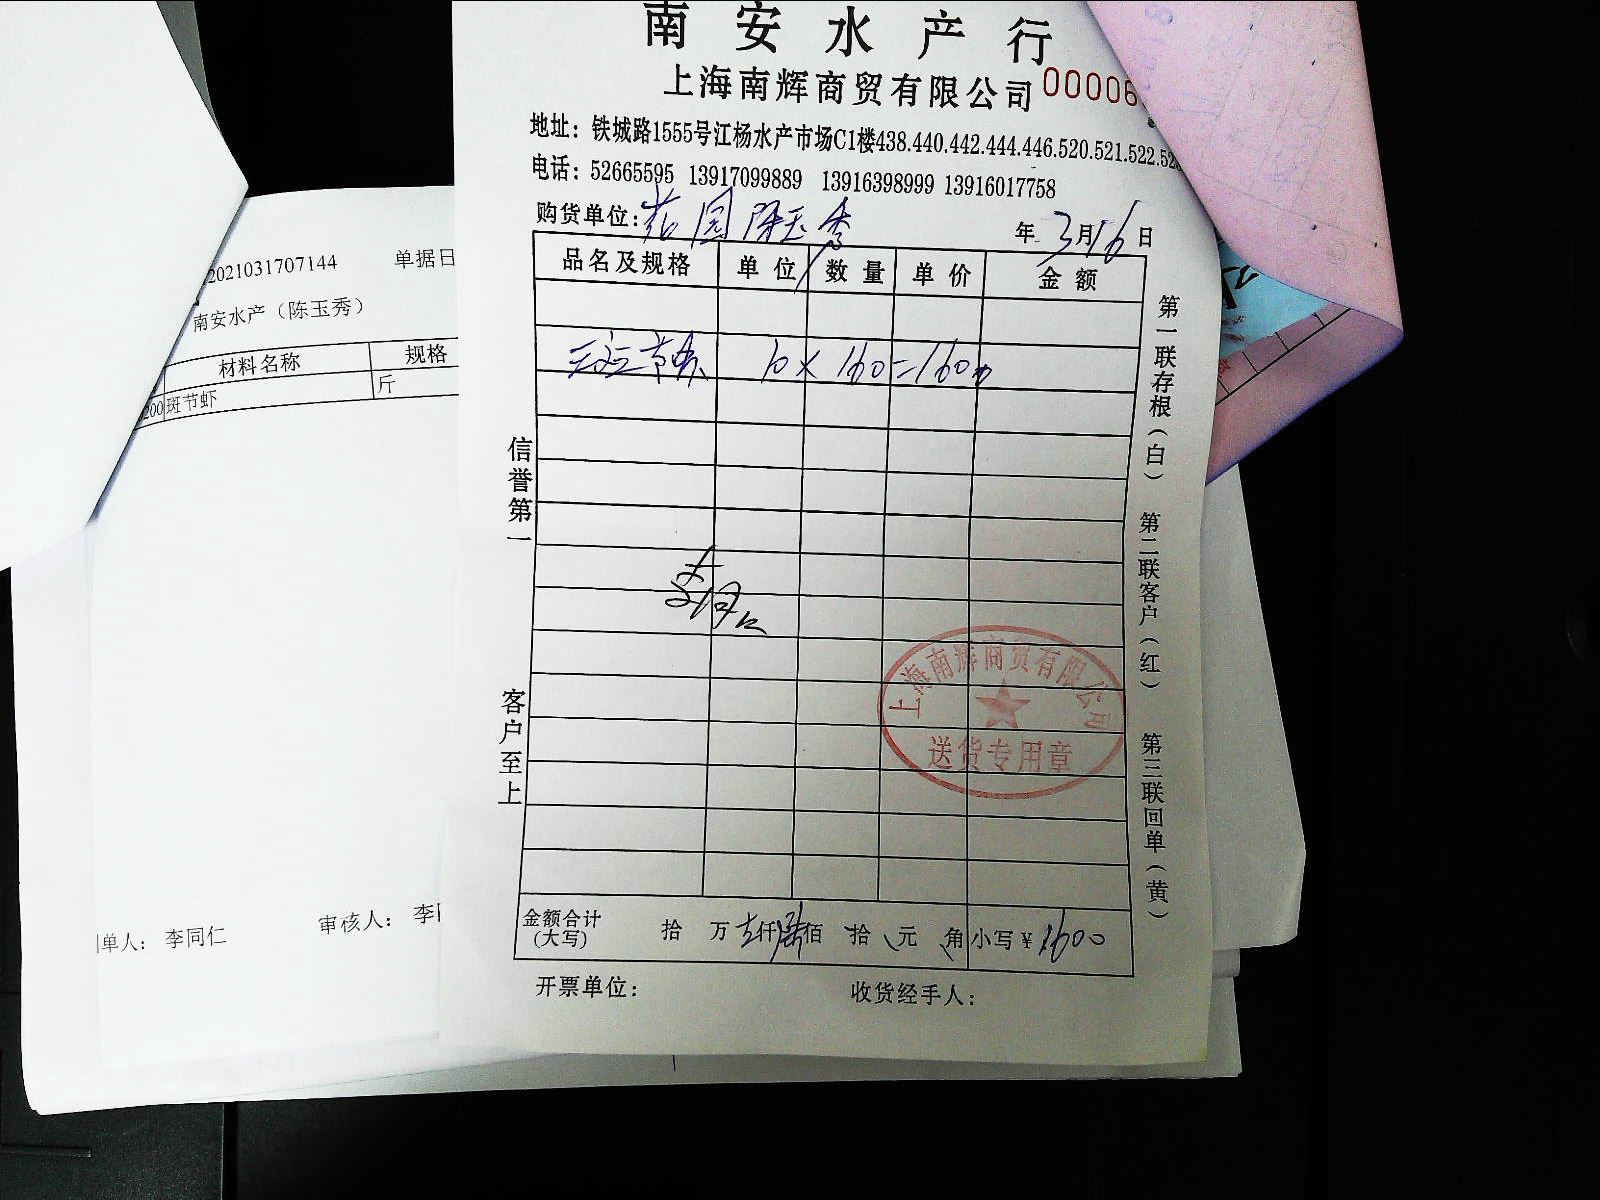 南安水产行
上海南辉商贸有限公司 00006
地址：铁城路1555号江杨水产市场C1楼438.440.442.444.446.520.521.522.52
电话：52665595 13917099889 13916398999 13916017758
购货单位：花园 陈玉秀 年 3月16日
品名及规格 单位 数量 单价 金额
斑节虾 10×160=1600
金额合计(大写) 拾 万 壹仟陆佰 拾 元 角 小写￥1600
开票单位： 收货经手人：
信誉第一
客户至上
第一联存根（白）
第二联客户（红）
第三联回单（黄）
上海南辉商贸有限公司
送货专用章
2021031707144 单据日
南安水产（陈玉秀）
材料名称 规格
200 斑节虾 斤
单人：李同仁 审核人：李